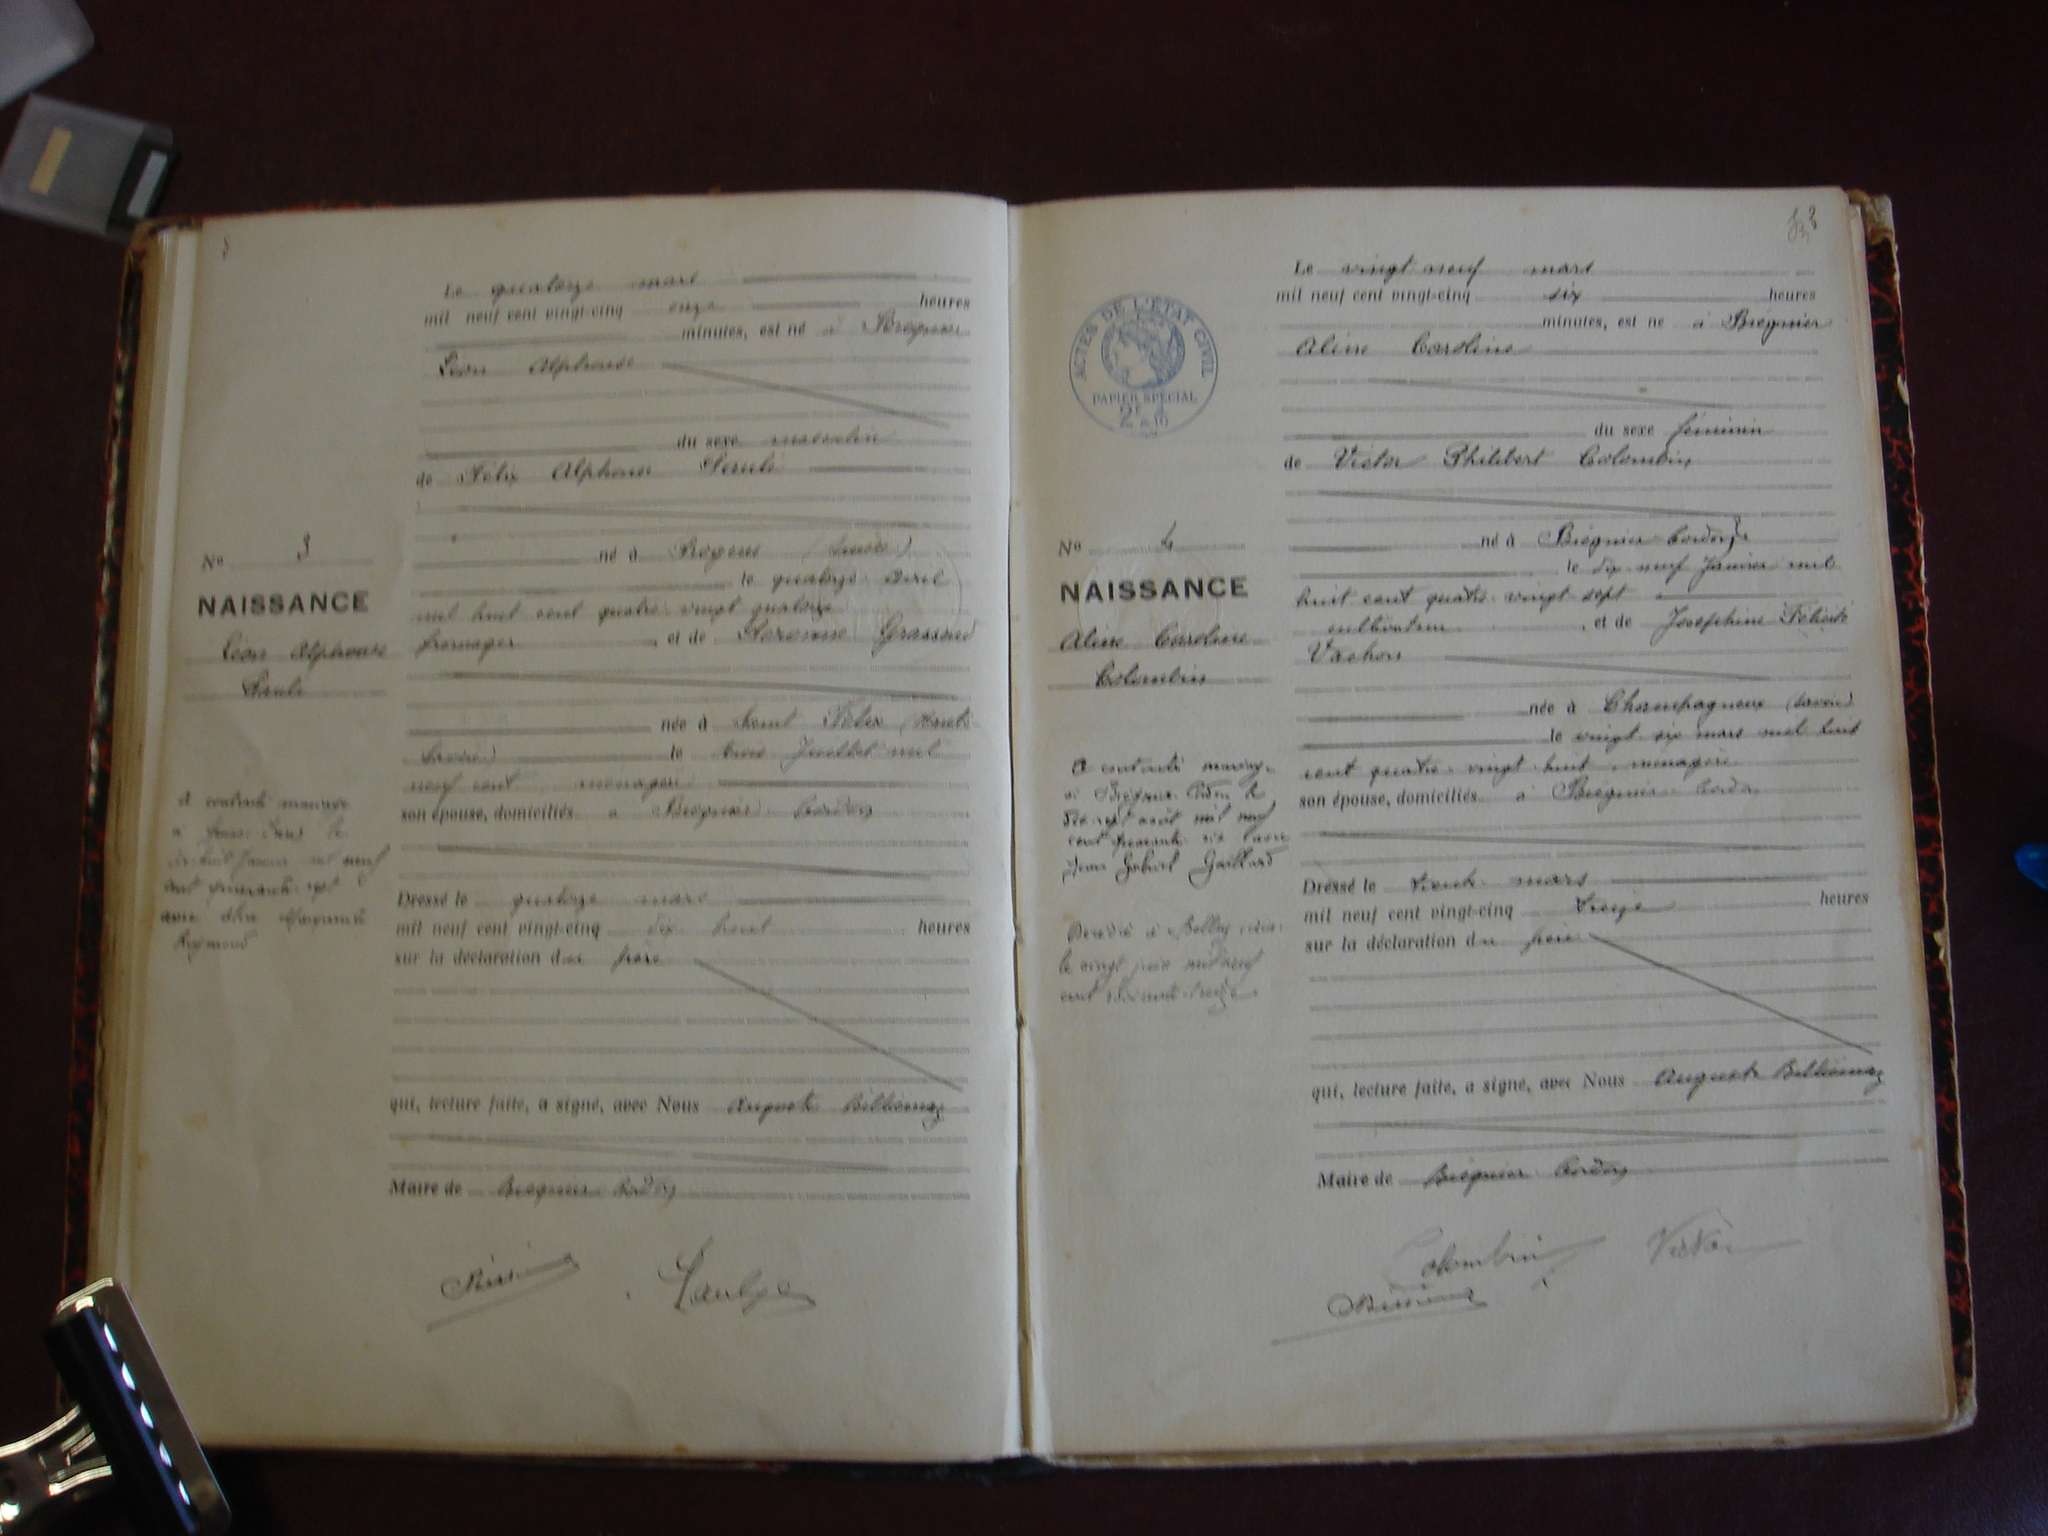 Le quatorze mars
mil neuf cent vingt-cinq onze heures
minutes, est né à Brégnier
Léon Alphonse
du sexe masculin
de Félix Alphonse
né à (Suisse)
le quatorze avril
mil huit cent quatre vingt quatorze
fromager et de Grassand
née à Saint Félix (Haute
Savoie) le trois Juillet mil
neuf cent ménagère
son épouse, domiciliés à Brégnier Cordon
Dressé le quatorze mars
mil neuf cent vingt-cinq dix huit heures
sur la déclaration du père
qui, lecture faite, a signé, avec Nous Auguste Billiemaz
Maire de Brégnier Cordon
No 3
NAISSANCE
Léon Alphonse
A contracté mariage
à le
dix huit Janvier mil neuf
cent quarante sept
avec Marguerite
Raymond
3
Le vingt neuf mars
mil neuf cent vingt-cinq six heures
minutes, est né à Brégnier
Aline Caroline
du sexe féminin
de Victor Philibert Colombin
né à Brégnier Cordon
le dix neuf Janvier mil
huit cent quatre vingt sept
cultivateur, et de Joséphine Félicité
Vachon
née à Champagneux (Savoie)
le vingt six mars mil huit
cent quatre vingt huit, ménagère
son épouse, domiciliés à Brégnier Cordon
Dressé le trente mars
mil neuf cent vingt-cinq treize heures
sur la déclaration du père
qui, lecture faite, a signé, avec Nous Auguste Billiemaz
Maire de Brégnier Cordon
Colombin Victor
ACTES DE L'ÉTAT CIVIL
PAPIER SPÉCIAL
No 4
NAISSANCE
Aline Caroline
Colombin
A contracté mariage
à Brégnier Cordon le
dix sept août mil neuf
cent quarante six avec
Jean Gabriel Gaillard
Décédée à Belley (Ain)
le vingt juin mil neuf
cent soixante treize